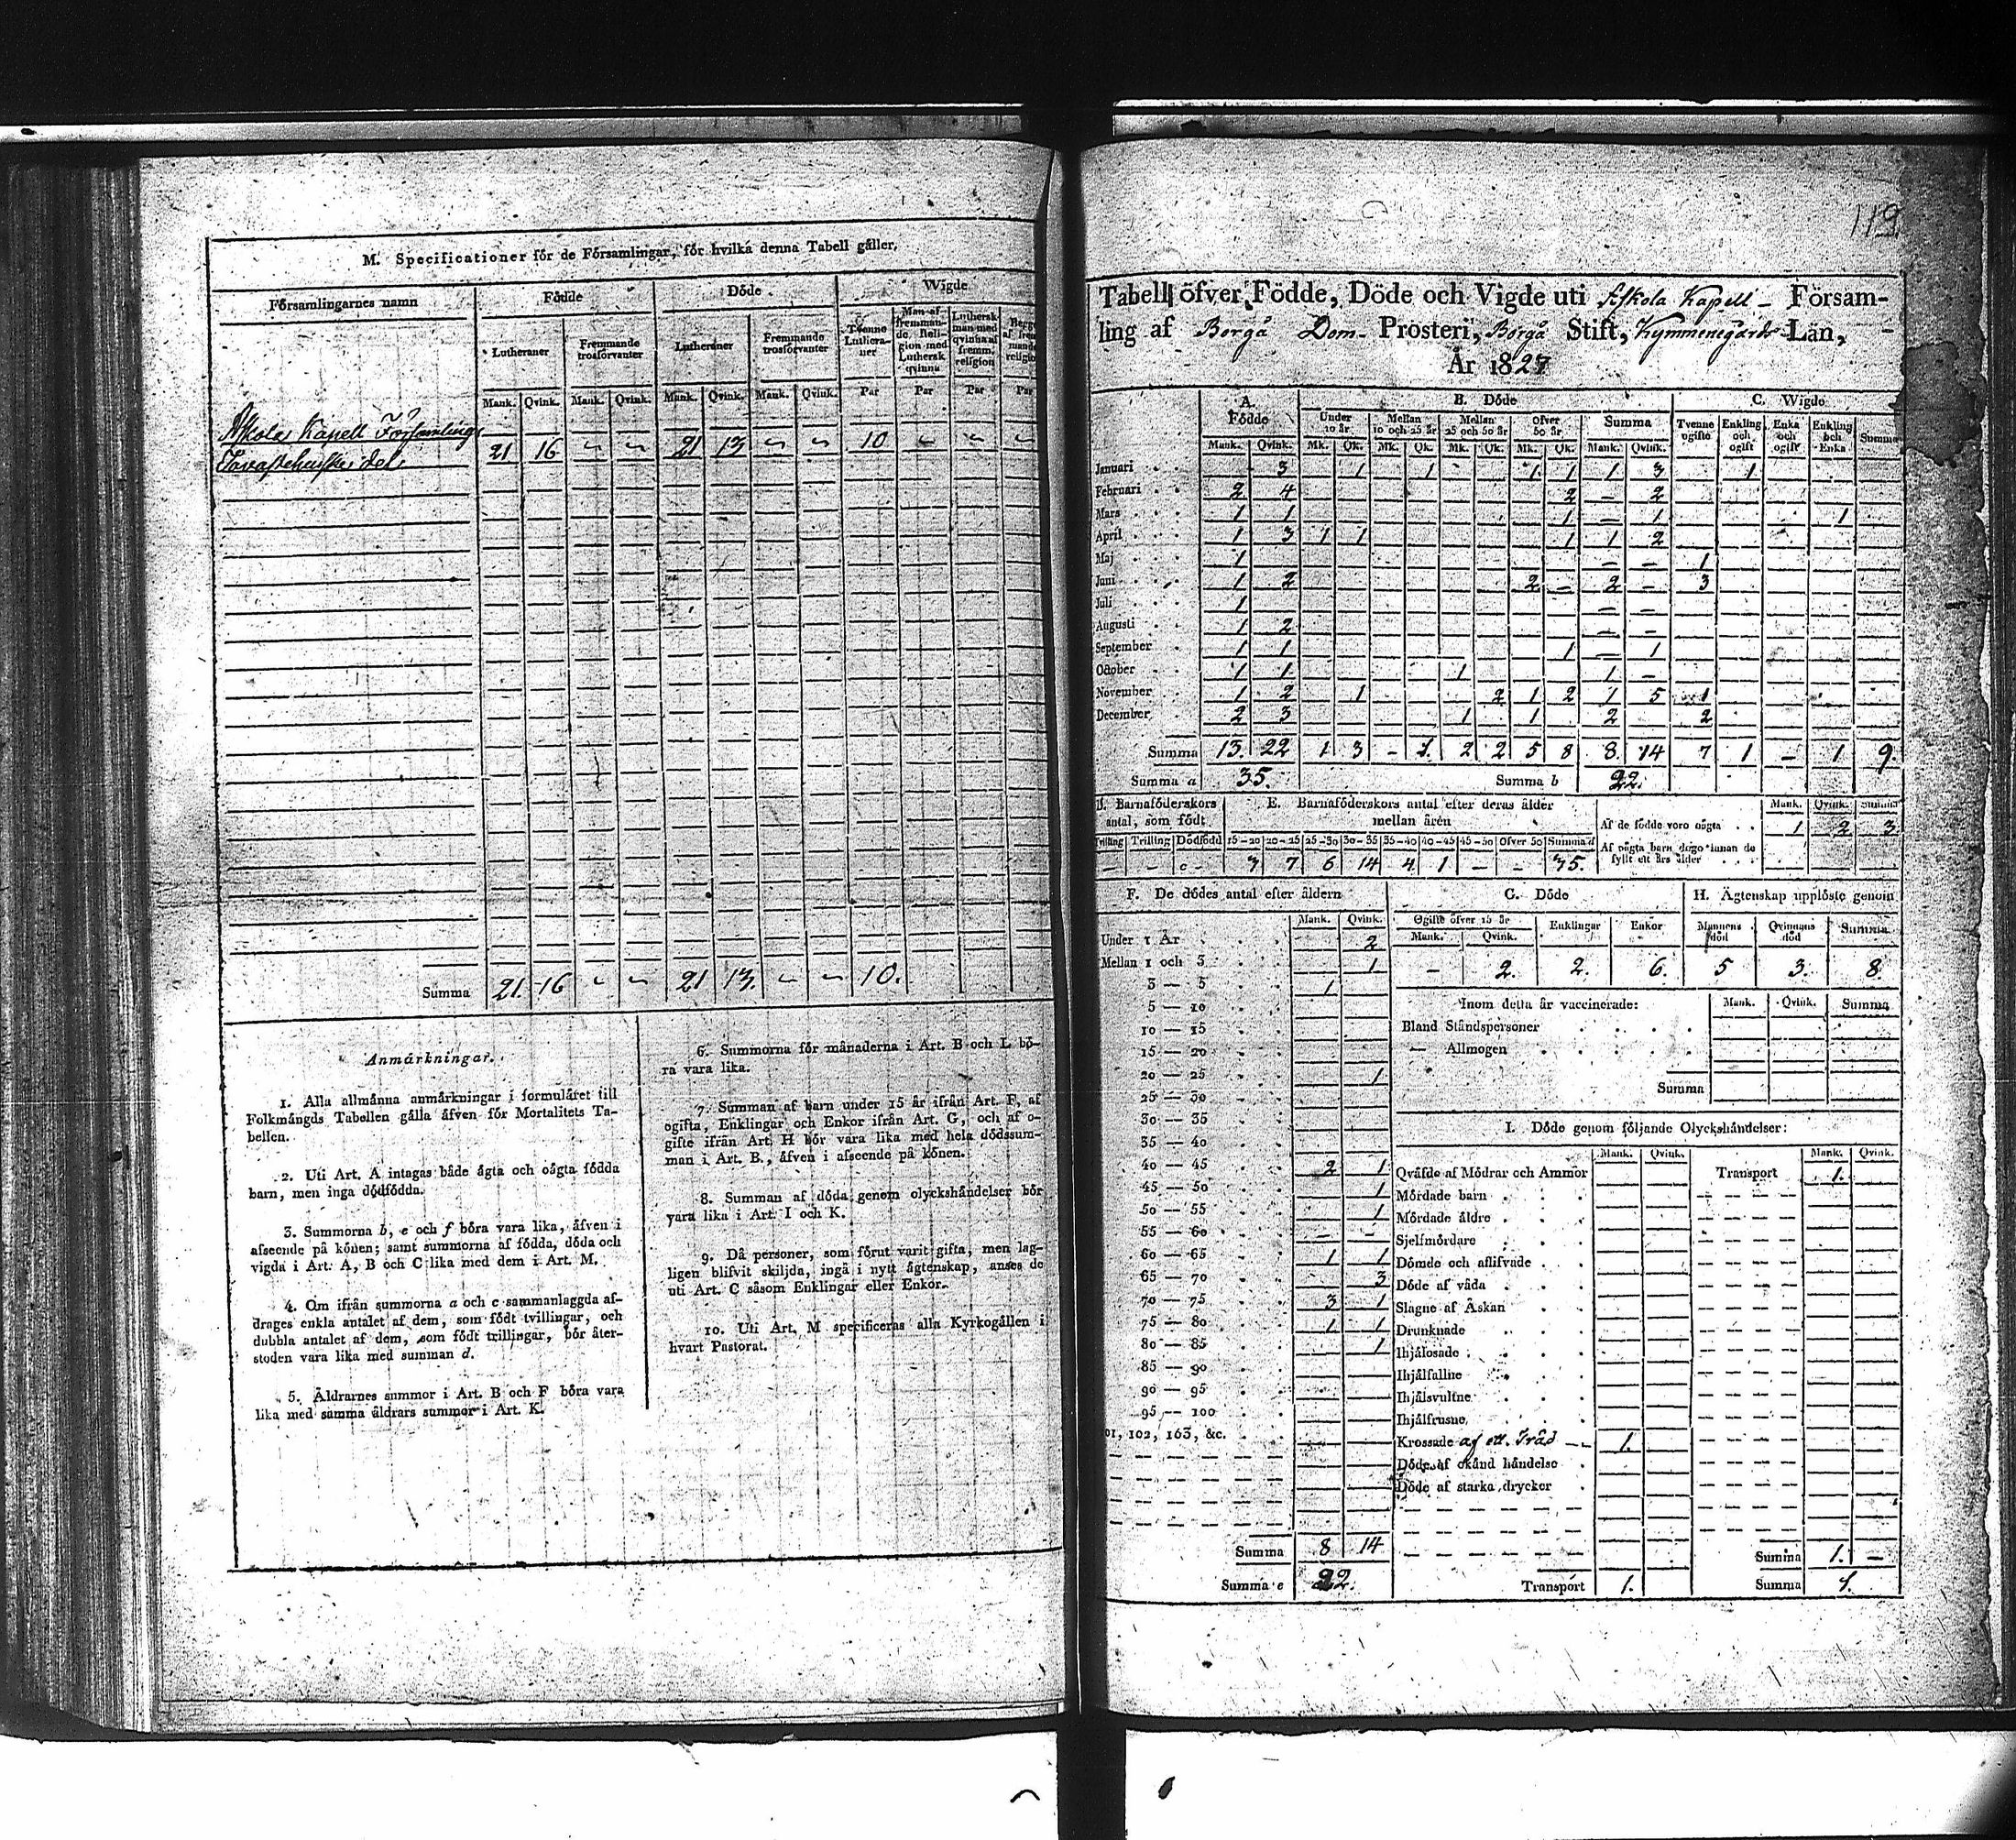 M. Specificationer för de Församlingar, för hvilka denna Tabell gäller.
Församlingarnes namn Födde Döde Wigde
Lutheraner Fremmande trosförvanter Lutheraner Fremmande trosförvanter Tvenne Lutheraner Man af fremmande Religion med Luthersk qvinna Luthersk man med qvinna af fremm. religion
Mank. Qvink. Mank. Qvink. Mank. Qvink. Mank. Qvink. Par Par Par Par
Askola Kapell Församlings
Tavastehuske del. 21 16 ~ ~ 21 13 ~ ~ 10 ~ ~ ~
Summa 21 16 ~ ~ 21 13 ~ ~ 10.
Anmärkningar.
1. Alla allmänna anmärkningar i formuläret till
Folkmängds Tabellen gälla äfven för Mortalitets Ta-
bellen.
2. Uti Art. A intagas både ägta och oägta födda
barn, men inga dödfödda.
3. Summorna b, e och f böra vara lika, äfven i
afseende på könen; samt summorna af födda, döda och
vigda i Art. A, B och C lika med dem i Art. M.
4. Om ifrån summorna a och c sammanlaggda af-
drages enkla antalet af dem, som födt tvillingar, och
dubbla antalet af dem, som födt trillingar, bör åter-
stoden vara lika med summan d.
5. Åldrarnes summor i Art. B och F böra vara
lika med samma åldrars summor i Art. K.
6. Summorna för månaderna i Art. B och L bö-
ra vara lika.
7. Summan af barn under 15 år ifrån Art. F, af
ogifta, Enklingar och Enkor ifrån Art. G, och af o-
gifte ifrån Art. H bör vara lika med hela dödssum-
man i Art. B., äfven i afseende på könen.
8. Summan af döda genom olyckshändelser bör
vara lika i Art. I och K.
9. Då personer, som förut varit gifta, men lag-
ligen blifvit skiljda, ingå i nytt ägtenskap, anses de
uti Art. C såsom Enklingar eller Enkor.
10. Uti Art. M specificeras alla Kyrkogällen i
hvart Pastorat.
119
Tabell öfver Födde, Döde och Vigde uti Askola Kapell - Försam-
ling af Borgå Dom- Prosteri, Borgå Stift, Kymmenegårds Län,
År 1827
A. Födde B. Döde C. Wigde
Under 10 år Mellan 10 och 25 år Mellan 25 och 50 år Öfver 50 år Summa Tvenne ogifte Enkling och ogift Enka och ogift Enkling och Enka Summa
Mank. Qvink. Mk. Qk. Mk. Qk. Mk. Qk. Mk. Qk. Mank. Qvink.
Januari 3 1 1 1 1 1 3 1
Februari 2 4 2 - 2
Mars 1 1 1 - 1 1
April 1 3 1 1 1 1 2
Maj 1 - - 1
Juni 1 2 2 - 2 - 3
Juli 1 - -
Augusti 1 2 - -
September 1 1 1 - 1
October 1 1 1 1 -
November 1 2 1 2 1 2 1 5 1
December 2 3 1 1 2 2
Summa 13. 22 1 3 - 1. 2 2 5 8 8. 14 7 1 - 1 9.
Summa a 35. Summa b 22.
D. Barnaföderskors antal, som födt E. Barnaföderskors antal efter deras ålder mellan åren Mank. Qvink. Summa
Af de födde voro oägta 1 2 3.
Tvilling Trilling Dödfödd 15-20 20-25 25-30 30-35 35-40 40-45 45-50 Öfver 50 Summa d
- - c - 3 7 6 14 4 1 - - 35.
Af oägta barn dogo innan de
fyllt ett års ålder
F. De dödes antal efter åldern
Mank. Qvink.
Under 1 År 2
Mellan 1 och 3 1
3 — 5 1
5 — 10
10 — 15
15 — 20
20 — 25 1
25 — 30
30 — 35
35 — 40
40 — 45 2 1
45 — 50 1
50 — 55 1
55 — 60 - -
60 — 65 1 1
65 — 70 3
70 — 75 3 1
75 — 80 1 1
80 — 85 1
85 — 90
90 — 95
95 — 100
101, 102, 103, &c.
Summa 8 14
Summa e 22.
G. Döde H. Ägtenskap upplöste genom
Ogifte öfver 15 år Enklingar Enkor Mannens död Qvinnans död Summa
Mank. Qvink.
- 2. 2. 6. 5 3. 8.
Inom detta år vaccinerade: Mank. Qvink. Summa
Bland Ståndspersoner
— Allmogen
Summa
I. Döde genom följande Olyckshändelser:
Mank. Qvink. Mank. Qvink.
Qväfde af Mödrar och Ammor Transport 1.
Mördade barn
Mördade äldre
Sjelfmördare
Dömde och aflifvade
Döde af våda
Slagne af Åskan
Drunknade
Ihjälosade
Ihjälfallne
Ihjälsvultne
Ihjälfrusne
Krossade af ett Träd 1.
Döde af okänd händelse
Döde af starka drycker
Summa 1. -
Transport 1. Summa 1.